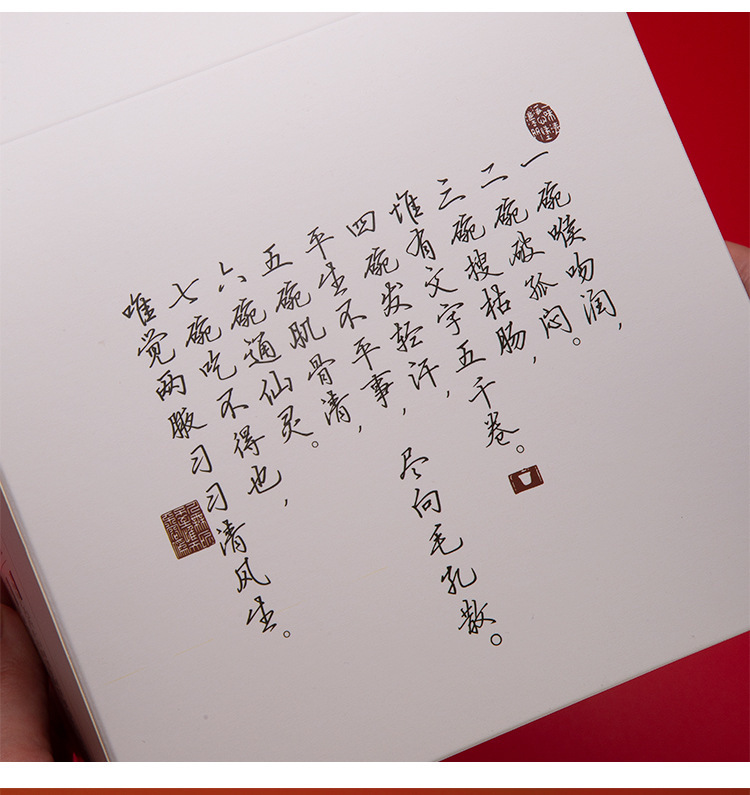 一碗喉吻润，
二碗破孤闷。
三碗搜枯肠，
堆有文字五千卷。
四碗发轻汗，
平生不平事，尽向毛孔散。
五碗肌骨清，
六碗通仙灵。
七碗吃不得也，
唯觉两腋习习清风生。